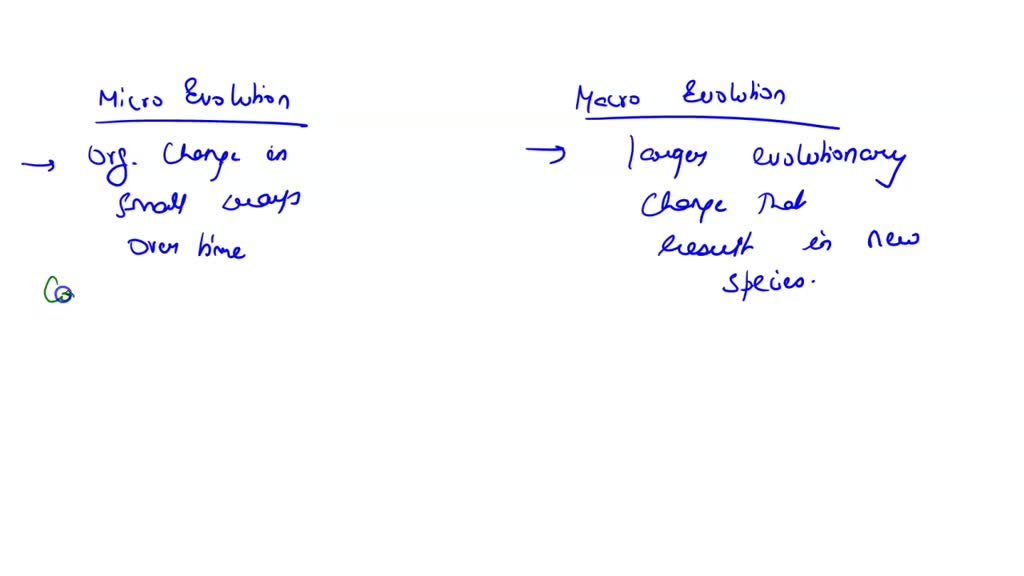 Micro Evolution
→ Org. Change in
small ways
Over time
Co
Macro Evolution
→ larger evolutionary
Change that
result in new
species.